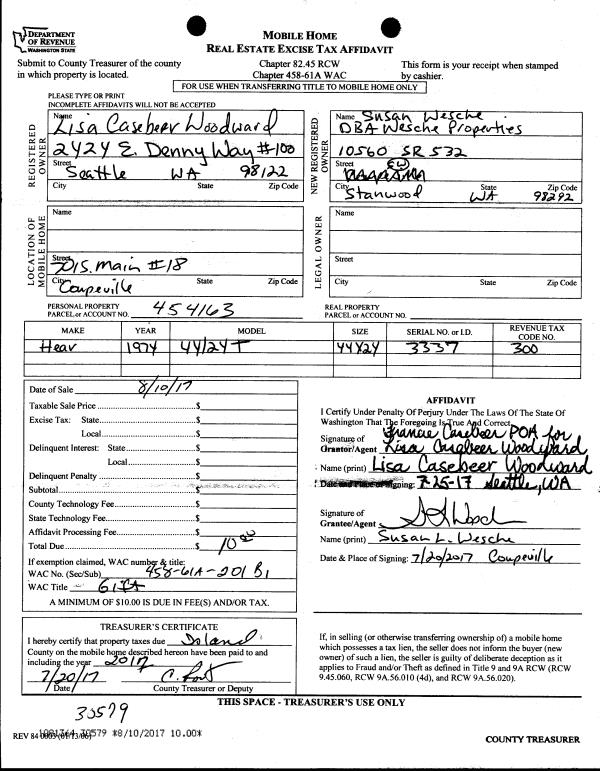 DEPARTMENT
OF REVENUE
WASHINGTON STATE
MOBILE HOME
REAL ESTATE EXCISE TAX AFFIDAVIT
Submit to County Treasurer of the county
in which property is located.
Chapter 82.45 RCW
Chapter 458-61A WAC
This form is your receipt when stamped
by cashier.
FOR USE WHEN TRANSFERRING TITLE TO MOBILE HOME ONLY
PLEASE TYPE OR PRINT
INCOMPLETE AFFIDAVITS WILL NOT BE ACCEPTED
REGISTERED
OWNER
Name Lisa Casebeer Woodward
2424 E. Denny Way #100
Street
Seattle WA 98122
City State Zip Code
NEW REGISTERED
OWNER
Name Susan Wesche
DBA Wesche Properties
10560 SR 532
Street
Stanwood WA 98292
City State Zip Code
LOCATION OF
MOBILE HOME
Name
Street 701 S. Main #18
City Coupeville State Zip Code
LEGAL OWNER
Name
Street
City State Zip Code
PERSONAL PROPERTY
PARCEL or ACCOUNT NO. 454163
REAL PROPERTY
PARCEL or ACCOUNT NO.
MAKE YEAR MODEL SIZE SERIAL NO. or I.D. REVENUE TAX
CODE NO.
Heav 1974 44/24T 44X24 3337 300
Date of Sale 8/10/17
Taxable Sale Price $
Excise Tax: State $
Local $
Delinquent Interest: State $
Local $
Delinquent Penalty $
Subtotal $
County Technology Fee $
State Technology Fee $
Affidavit Processing Fee $
Total Due $ 10.00
If exemption claimed, WAC number & title:
WAC No. (Sec/Sub) 458-61A-201 B1
WAC Title Gift
A MINIMUM OF $10.00 IS DUE IN FEE(S) AND/OR TAX.
AFFIDAVIT
I Certify Under Penalty Of Perjury Under The Laws Of The State Of
Washington That The Foregoing Is True And Correct.
Signature of Francie Casebeer POA for
Grantor/Agent Lisa Casebeer Woodward
Name (print) Lisa Casebeer Woodward
Date and Place of Signing: 7-25-17 Seattle, WA
Signature of
Grantee/Agent
Name (print) Susan L. Wesche
Date & Place of Signing: 7/20/2017 Coupeville
TREASURER'S CERTIFICATE
I hereby certify that property taxes due Island
County on the mobile home described hereon have been paid to and
including the year 2017
7/20/17
Date County Treasurer or Deputy
If, in selling (or otherwise transferring ownership of) a mobile home
which possesses a tax lien, the seller does not inform the buyer (new
owner) of such a lien, the seller is guilty of deliberate deception as it
applies to Fraud and/or Theft as defined in Title 9 and 9A RCW (RCW
9.45.060, RCW 9A.56.010 (4d), and RCW 9A.56.020).
THIS SPACE - TREASURER'S USE ONLY
30579
REV 84 30579 *8/10/2017 10.00*
COUNTY TREASURER